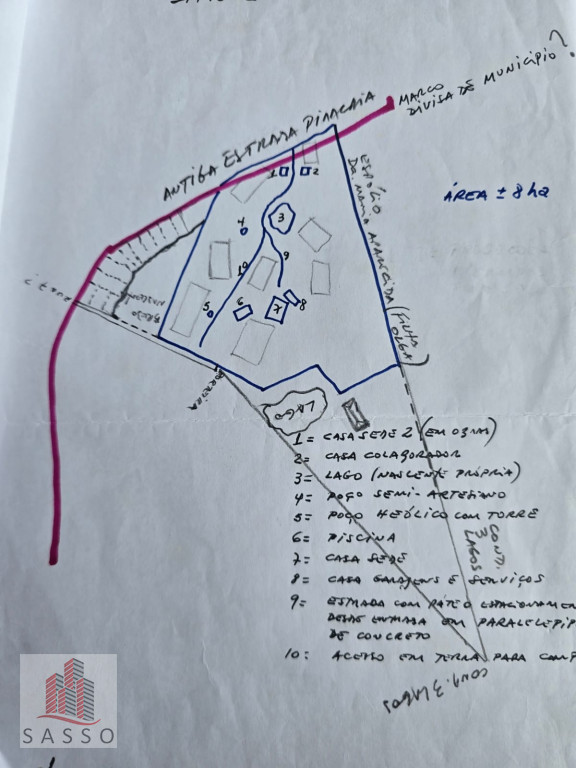 MARCO
DIVISA DE MUNICÍPIO?
ANTIGA ESTRADA PIRACAIA
ÁREA ± 8 ha
ESPÓLIO
DA. MARIA APARECIDA (FILHA
OLGA)
1 2
3
4
9
10
8
7
6
5
BREJO
NASCENTE
PORTEIRA
LAGO
1= CASA SEDE 2 (EM OBRAS)
2= CASA COLABORADOR
3= LAGO (NASCENTE PRÓPRIA)
4= POÇO SEMI-ARTESIANO
5= POÇO HEÓLICO COM TORRE
6= PISCINA
7= CASA SEDE
8= CASA GARAGENS E SERVIÇOS
9= ESTRADA COM PÁTEO ESTACIONAMEN
DESDE ENTRADA EM PARALELEPÍP
DE CONCRETO
10= ACESSO EM TERRA PARA CAMP
COND.
3
LAGOS
COND. 3 LAGOS
SASSO